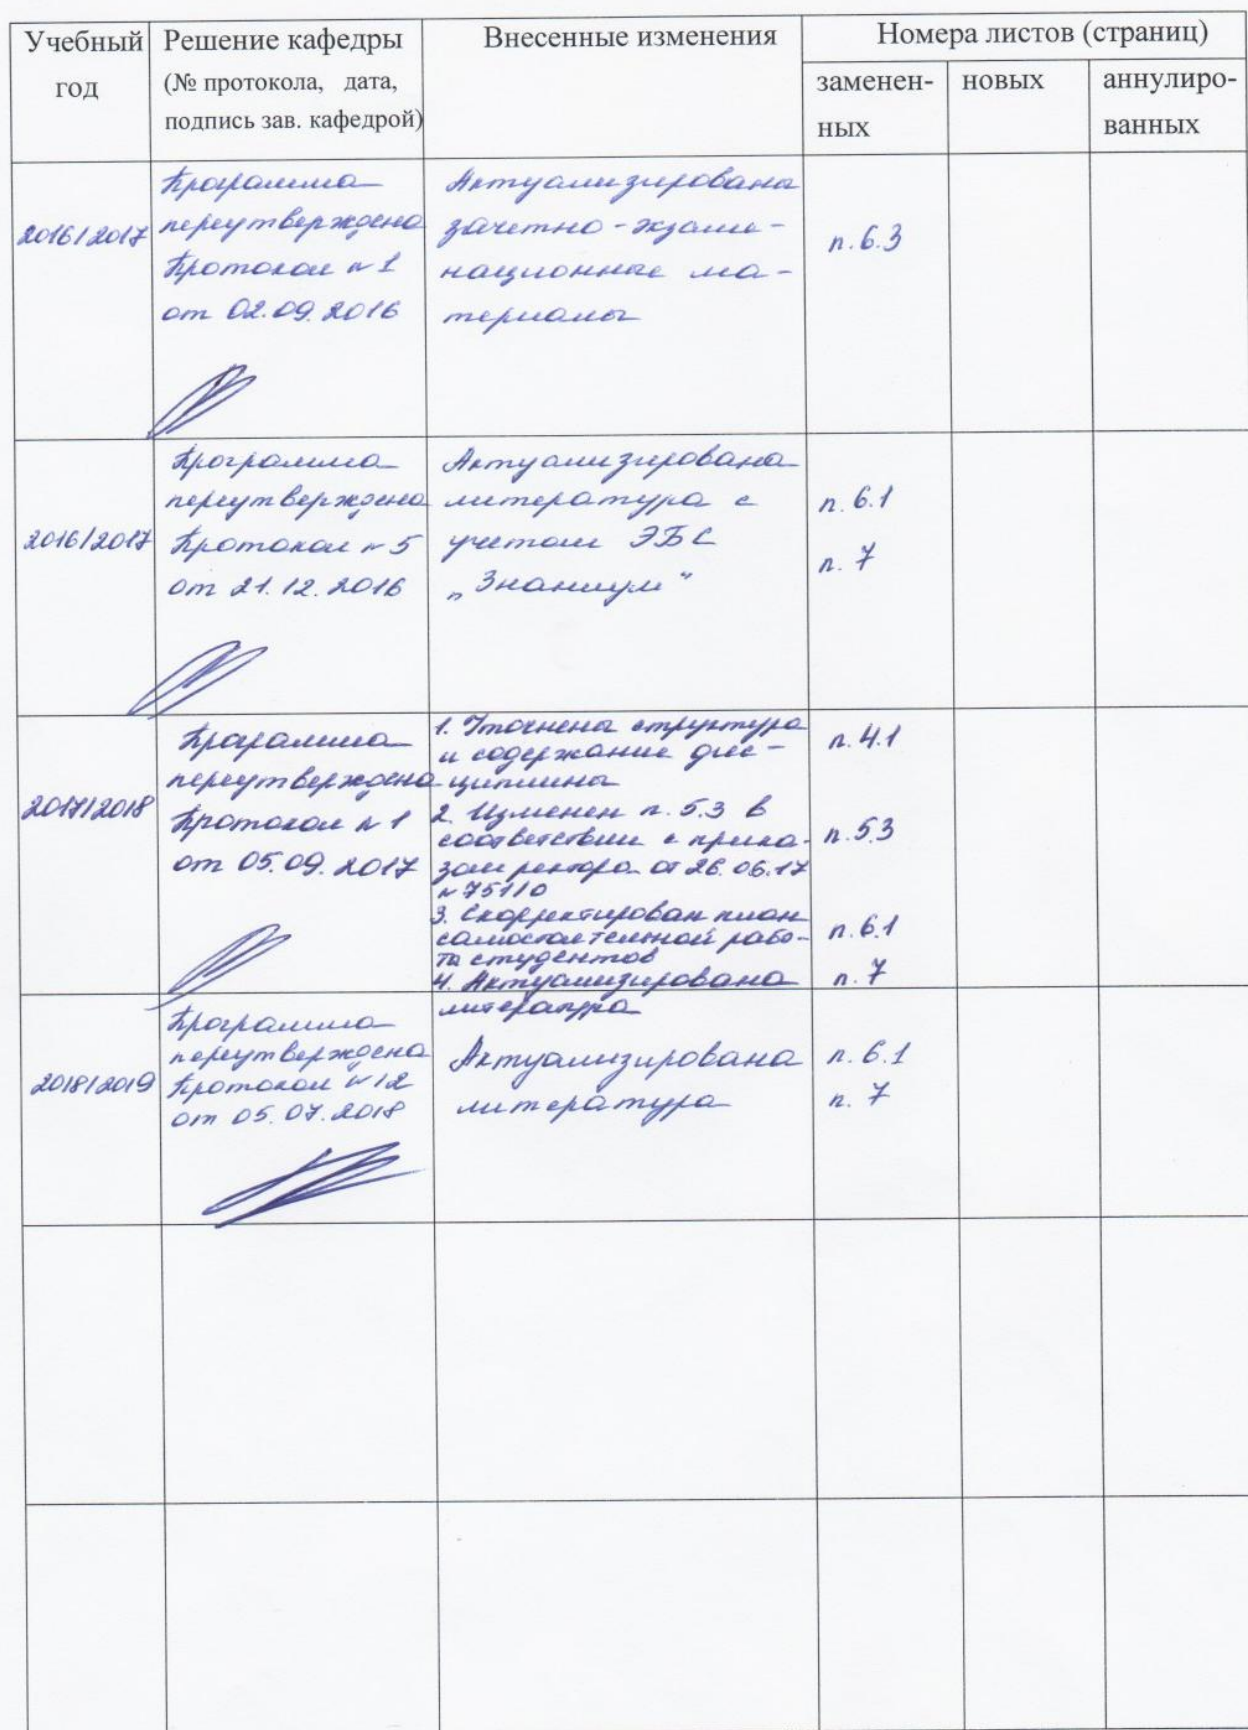 Учебный год
Решение кафедры
(№ протокола, дата,
подпись зав. кафедрой)
Внесенные изменения
Номера листов (страниц)
заменен-
ных
новых
аннулиро-
ванных
2016/2017
Программа
переутверждена
Протокол №1
от 02.09.2016
Актуализированы
зачетно-экзаме-
национные ма-
териалы
п. 6.3
2016/2017
Программа
переутверждена
Протокол №5
от 21.12.2016
Актуализирована
литература с
учетом ЭБС
„Знаниум"
п. 6.1
п. 7
2017/2018
Программа
переутверждена
Протокол №1
от 05.09.2017
1. Уточнена структура
и содержание дис-
циплины
2. Изменен п. 5.3 в
соответствии с прика-
зом ректора от 26.06.17
№ 751/0
3. Скорректирован план
самостоятельной рабо-
ты студентов
4. Актуализирована
литература
п. 4.1
п. 5.3
п. 6.1
п. 7
2018/2019
Программа
переутверждена
Протокол №12
от 05.07.2018
Актуализирована
литература
п. 6.1
п. 7